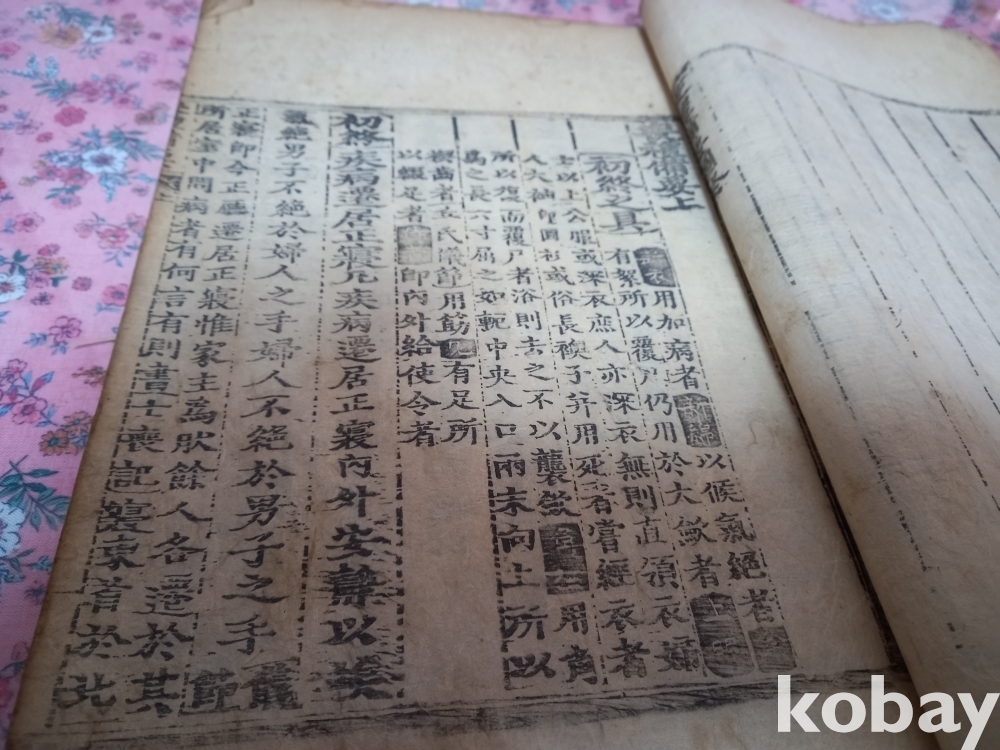 喪禮備要上
初終之具
用加病者以候氣絶者
有絮所以覆尸仍用於大斂者
士以上公服或深衣庶人亦深衣無則直領衣婦
人大袖卽圓衫或俗長襖子幷用死者嘗經衣者
所以復而覆尸者浴則去之不以襲斂楔齒用角
爲之長六寸屈之如軛中央入口兩末向上所以
楔齒者丘氏儀節用筯几有足所
以綴足者侍者卽內外給使令者
初終疾病遷居正寢凡疾病遷居正寢內外安靜以俟
氣絶男子不絶於婦人之手婦人不絶於男子之手儀節
正寢卽今正廳遷居正寢惟家主爲然餘人各遷於其
所居室中問病者有何言有則書士喪記寢東首於北
kobay